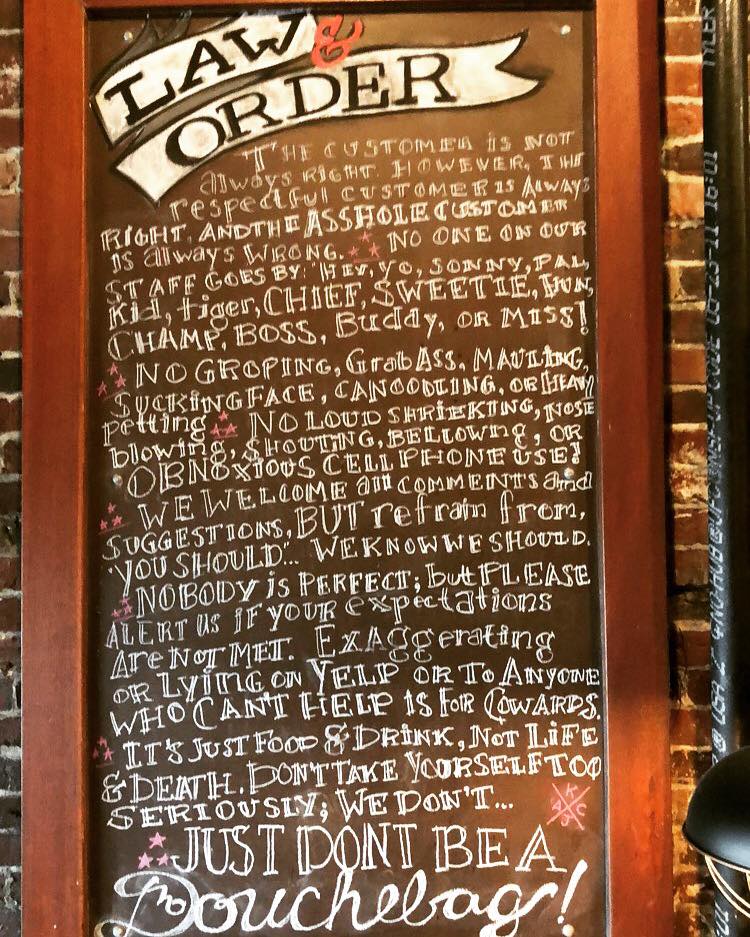 LAW &
ORDER
THE CUSTOMER IS NOT
always RIGHT. HOWEVER, THE
respectful CUSTOMER IS Always
RIGHT, AND THE ASSHOLE CUSTOMER
IS always WRONG. NO ONE ON OUR
STAFF GOES BY: "HEY, YO, SONNY, PAL,
Kid, tiger, CHIEF, SWEETIE, HUN,
CHAMP, BOSS, Buddy, OR MISS!
NO GROPING, Grab ASS, MAULING,
SUCKING FACE, CANOODLING, OR HEAVY
petting NO LOUD SHRIEKING, NOSE
blowing, SHOUTING, BELLOWNG, OR
OBNOXIOUS CELL PHONE USE!
WE WELCOME all COMMENTS and
SUGGESTIONS, BUT refrain from,
"YOU SHOULD"... WE KNOW WE SHOULD.
NOBODY is PERFECT; but PLEASE
ALERT US IF YOUR expectations
Are NOT MET. ExAggerating
OR LYING ON YELP OR TO ANYONE
WHO CAN'T HELP IS FOR COWARDS.
IT'S JUST FOOD & DRINK, NOT LIFE
& DEATH. DON'T TAKE YOURSELF TOO
SERIOUSLY; WE DON'T...
JUST DONT BE A
Douchebag!
TYLER
16:01